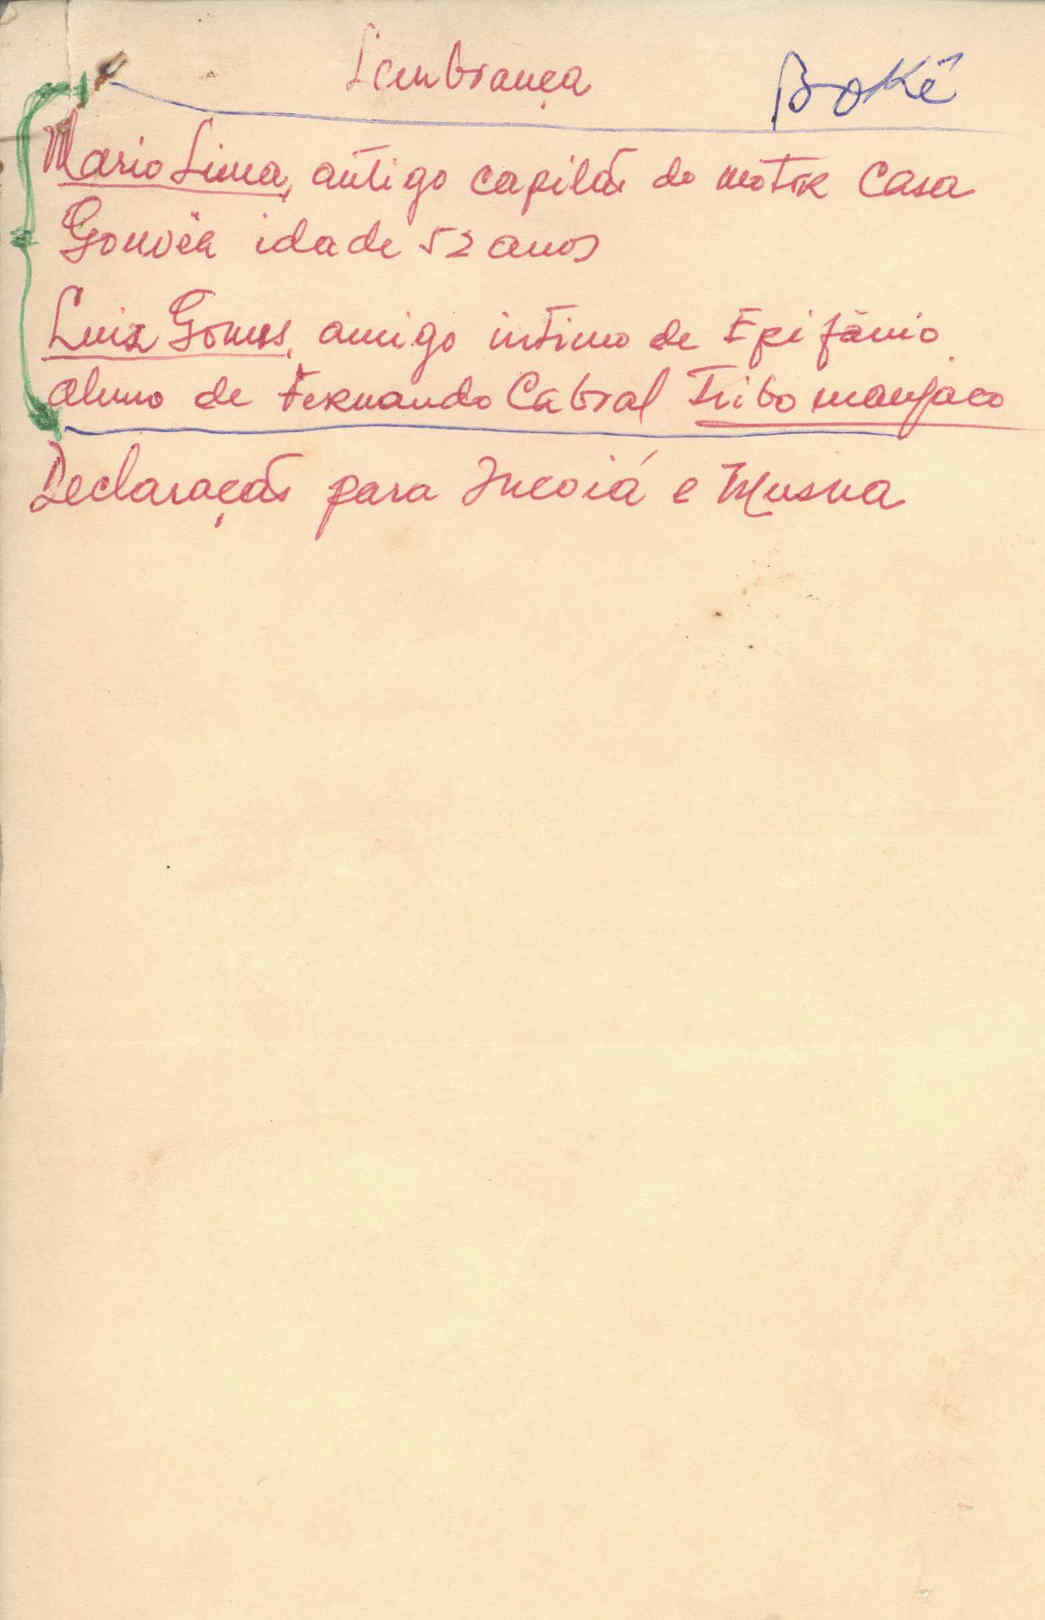 Lembrança Boké
Mario Lima, antigo capitão do motor Casa
Gouvêa idade 52 anos
Luiz Gomes, amigo intimo de Epifânio
aluno de Fernando Cabral Tribo manjaco
Declaração para e